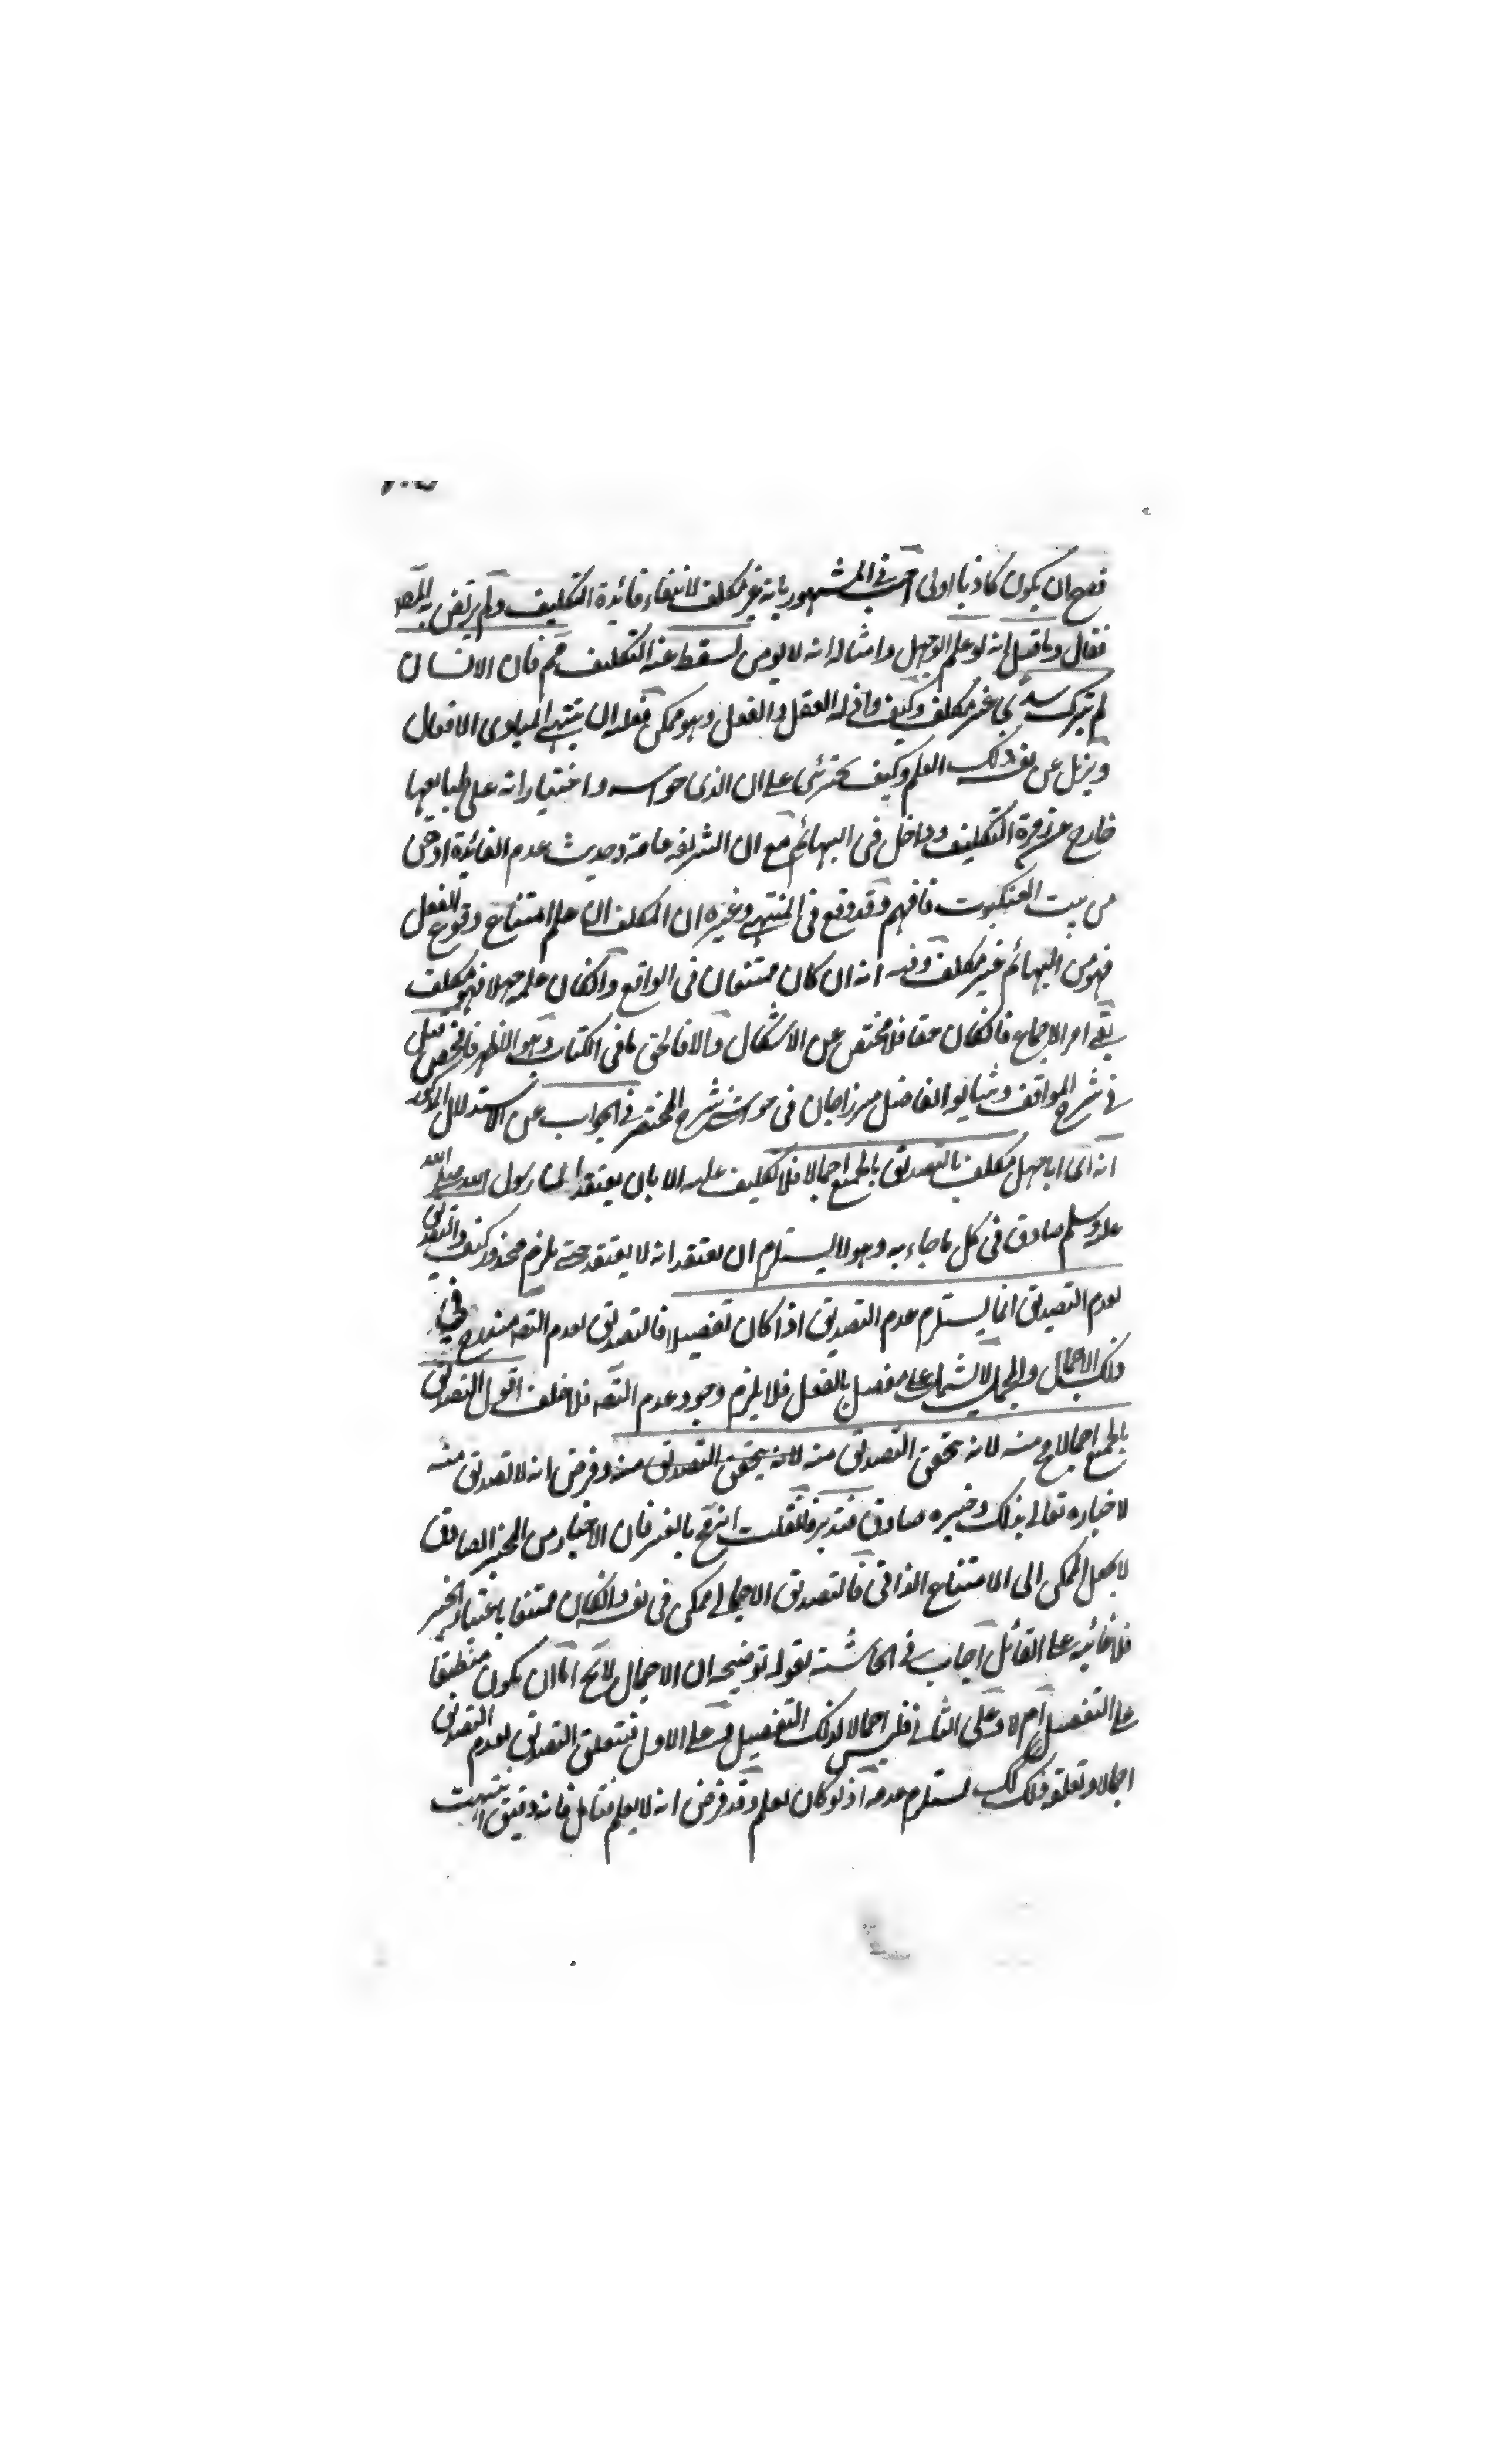 فصح ان يكون كاذبا اولى اجيب في المشهور بانه غير مكلف لانتفاء فائدة التكليف ولم يرتض به المصـ
فقال وما قيل انه لو علم ابو جهل وامثاله انه لا يومن لسقط عنه التكليف مم فان الانسان
لم يترك سدى غير مكلف وكيف واذ له العقل والفعل وهو ممكن فعله ان ينتهي المبادى الافعال
ويزيل عن نفسه ذلك العلم وكيف يجترئ على ان الذى حواسه واختياراته على طبايعها
خارج عن زمرة التكليف وداخل فى البهائم مع ان الشريعة عامة وحديث عدم الفائدة اوهن
من بيت العنكبوت فافهم وقد وقع فى المنتهى وغيره ان المكلف ان علم امتناع وقوع الفعل
فهو من البهائم غير مكلف وفيه انه ان كان ممتنعا فى الواقع وانكان علمه جهلا فهو مكلف
بقى امر الاجماع فانكان حقا فلا مخلص عن الاشكال والا فالحق ما فى الكتاب وهو الاظهر فافحص قيل
في شرح المواقف الفاضل ميرزاجان فى حواشى شرح المختصر في الجواب عن الاستدلال المذكور
انه اى ابا جهل مكلف بالتصديق بالجميع اجمالا فلا تكليف عليه الا بان يعتقد ان رسول الله صلى الله
عليه وسلم صادق فى كل ما جاء به وهو لا يستلزم ان يعتقد انه لا يعتقد حتى يلزم محذور كيف والتصديق
بعدم التصديق انما يستلزم عدم التصديق اذا كان تفصيلا فالتصديق بعدم التصـ مندرج في
ذلك الاجمال والمجمل لا يشتمل على مفصل بالفعل فلا يلزم وجود عدم التصـ فلا خلف اقول التصديق
بالجميع اجمالا مح منه لانه يتحقق التصديق منه لانه يتحقق التصديق منه وفرض انه لا تصديق منه
لاخباره تعالى بذلك وخبره صادق فتدبر فانقلت انه مح بالغير فان الاخبار من المخبر الصادق
لا يجعل الممكن الى الامتناع الذاتى فالتصديق الاجمالى ممكن فى نفسه وانكان ممتنعا باعتبار الخبر
على القائل اجاب في الحاشية بقوله توضيحه ان الاجمال لا يخ اما ان يكون منطبقا
على التفصيل ام لا وعلى الثانى فليس اجمالا لذلك التفصيل وعلى الاول فيتعلق التصديق بعدم التصديق
اجمالا وتعلقه كذلك يستلزم عدمه اذ لو كان لعلم وقد فرض انه لا يعلم فتامل فانه دقيق انتهت